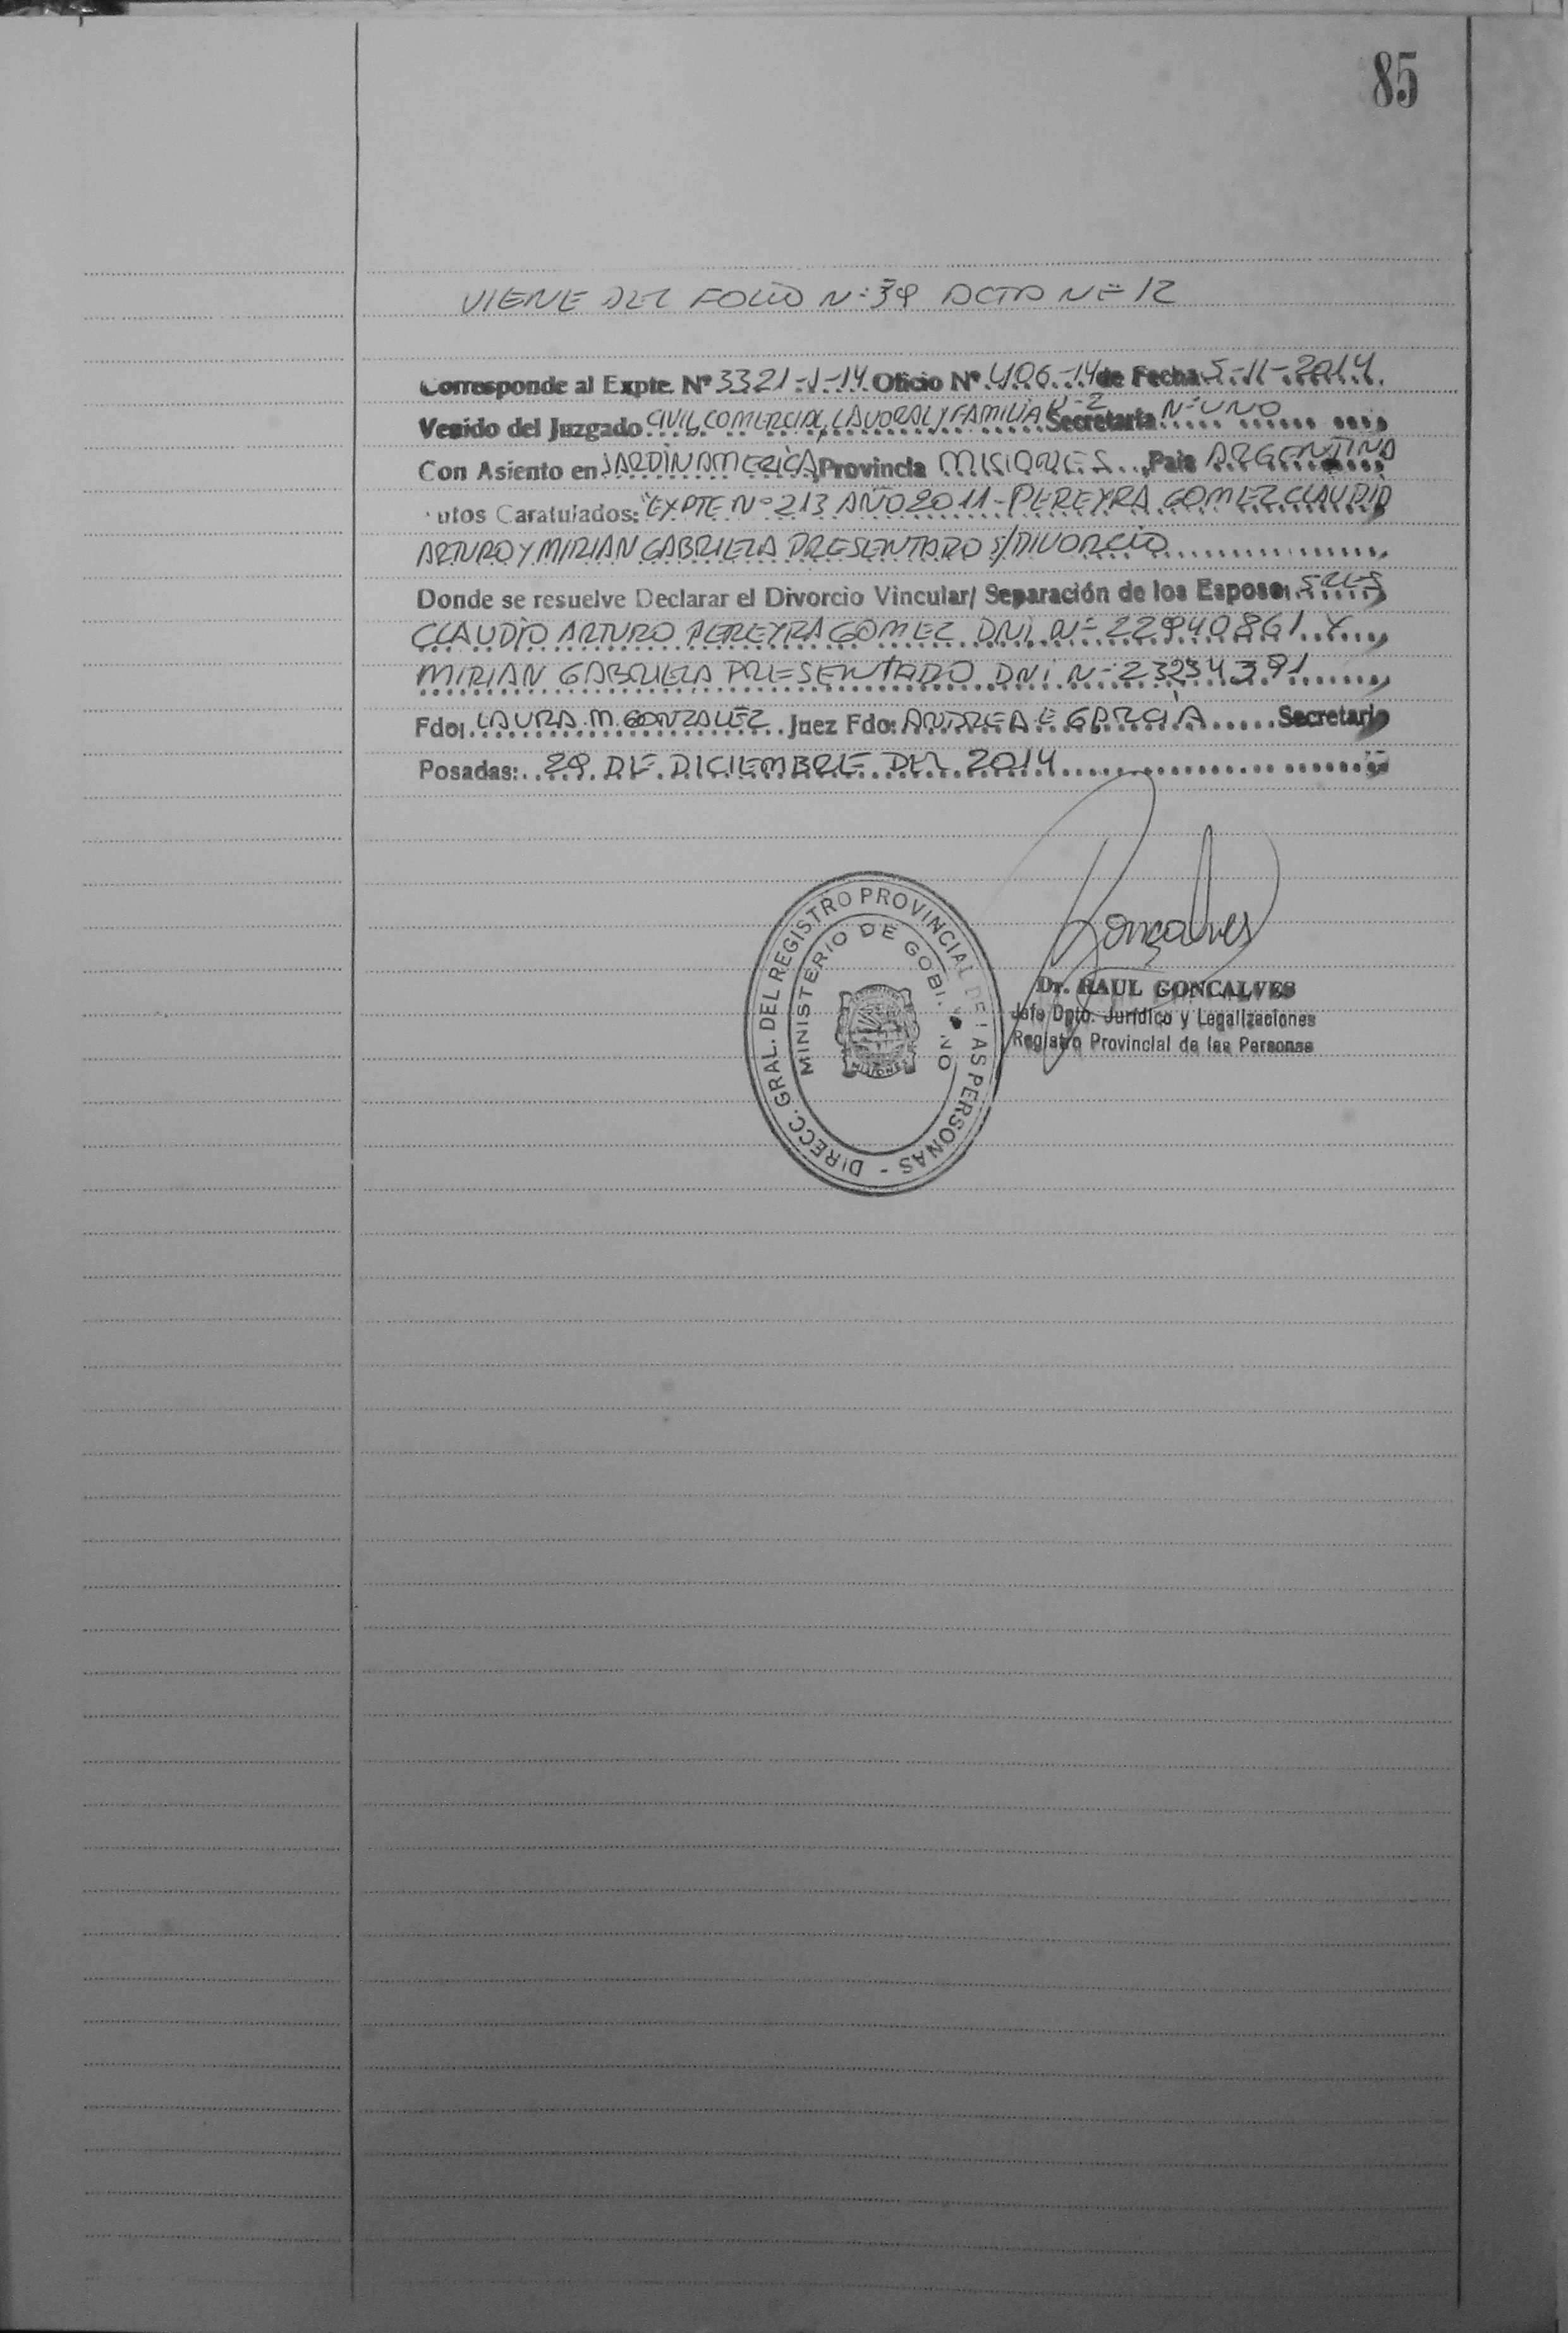 85
VIENE DEL FOLIO Nº 39 ACTA Nº 12
Corresponde al Expte. Nº 3321-J-14 Oficio Nº 406-14 de Fecha 5-11-2014
Venido del Juzgado CIVIL, COMERCIAL, LAVORAL Y FAMILIA Nº 2 Secretaría Nº UNO
Con Asiento en JARDIN AMERICA, Provincia MISIONES, Pais ARGENTINA
utos Caratulados: "EXPTE Nº 213 AÑO 2011 - PEREYRA GOMEZ CLAUDIO
ARTURO Y MIRIAN GABRIELA PRESENTADO S/DIVORCIO
Donde se resuelve Declarar el Divorcio Vincular/ Separación de los Esposos SRES
CLAUDIO ARTURO PEREYRA GOMEZ DNI Nº 22940861 Y
MIRIAN GABRIELA PRESENTADO DNI Nº 23234391
Fdo: LAURA M. GONZALEZ Juez Fdo: ANDREA E GARCIA Secretario
Posadas: 29 DE DICIEMBRE DEL 2014
DIRECC. GRAL. DEL REGISTRO PROVINCIAL DE LAS PERSONAS -
MINISTERIO DE GOBI NO
MISIONES
Gonçalves
Dr. RAUL GONCALVES
Jefe Dpto. Jurídico y Legalizaciones
Registro Provincial de las Personas